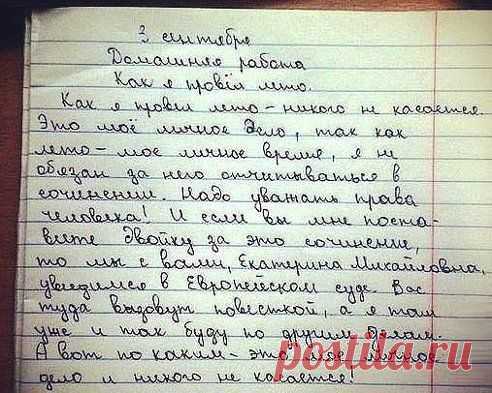 3 сентября
Домашняя работа
Как я провёл лето.
Как я провёл лето - никого не касается.
Это моё личное дело, так как
лето - мое личное время, я не
обязан за него отчитываться в
сочинении. Надо уважать права
человека! И если вы мне поста-
вите двойку за это сочинение,
то мы с вами, Екатерина Михайловна,
увидимся в Европейском суде. Вас
туда вызовут повесткой, а я там
уже и так буду по другим делам.
А вот по каким - это мое личное
дело и никого не касается!
postila.ru